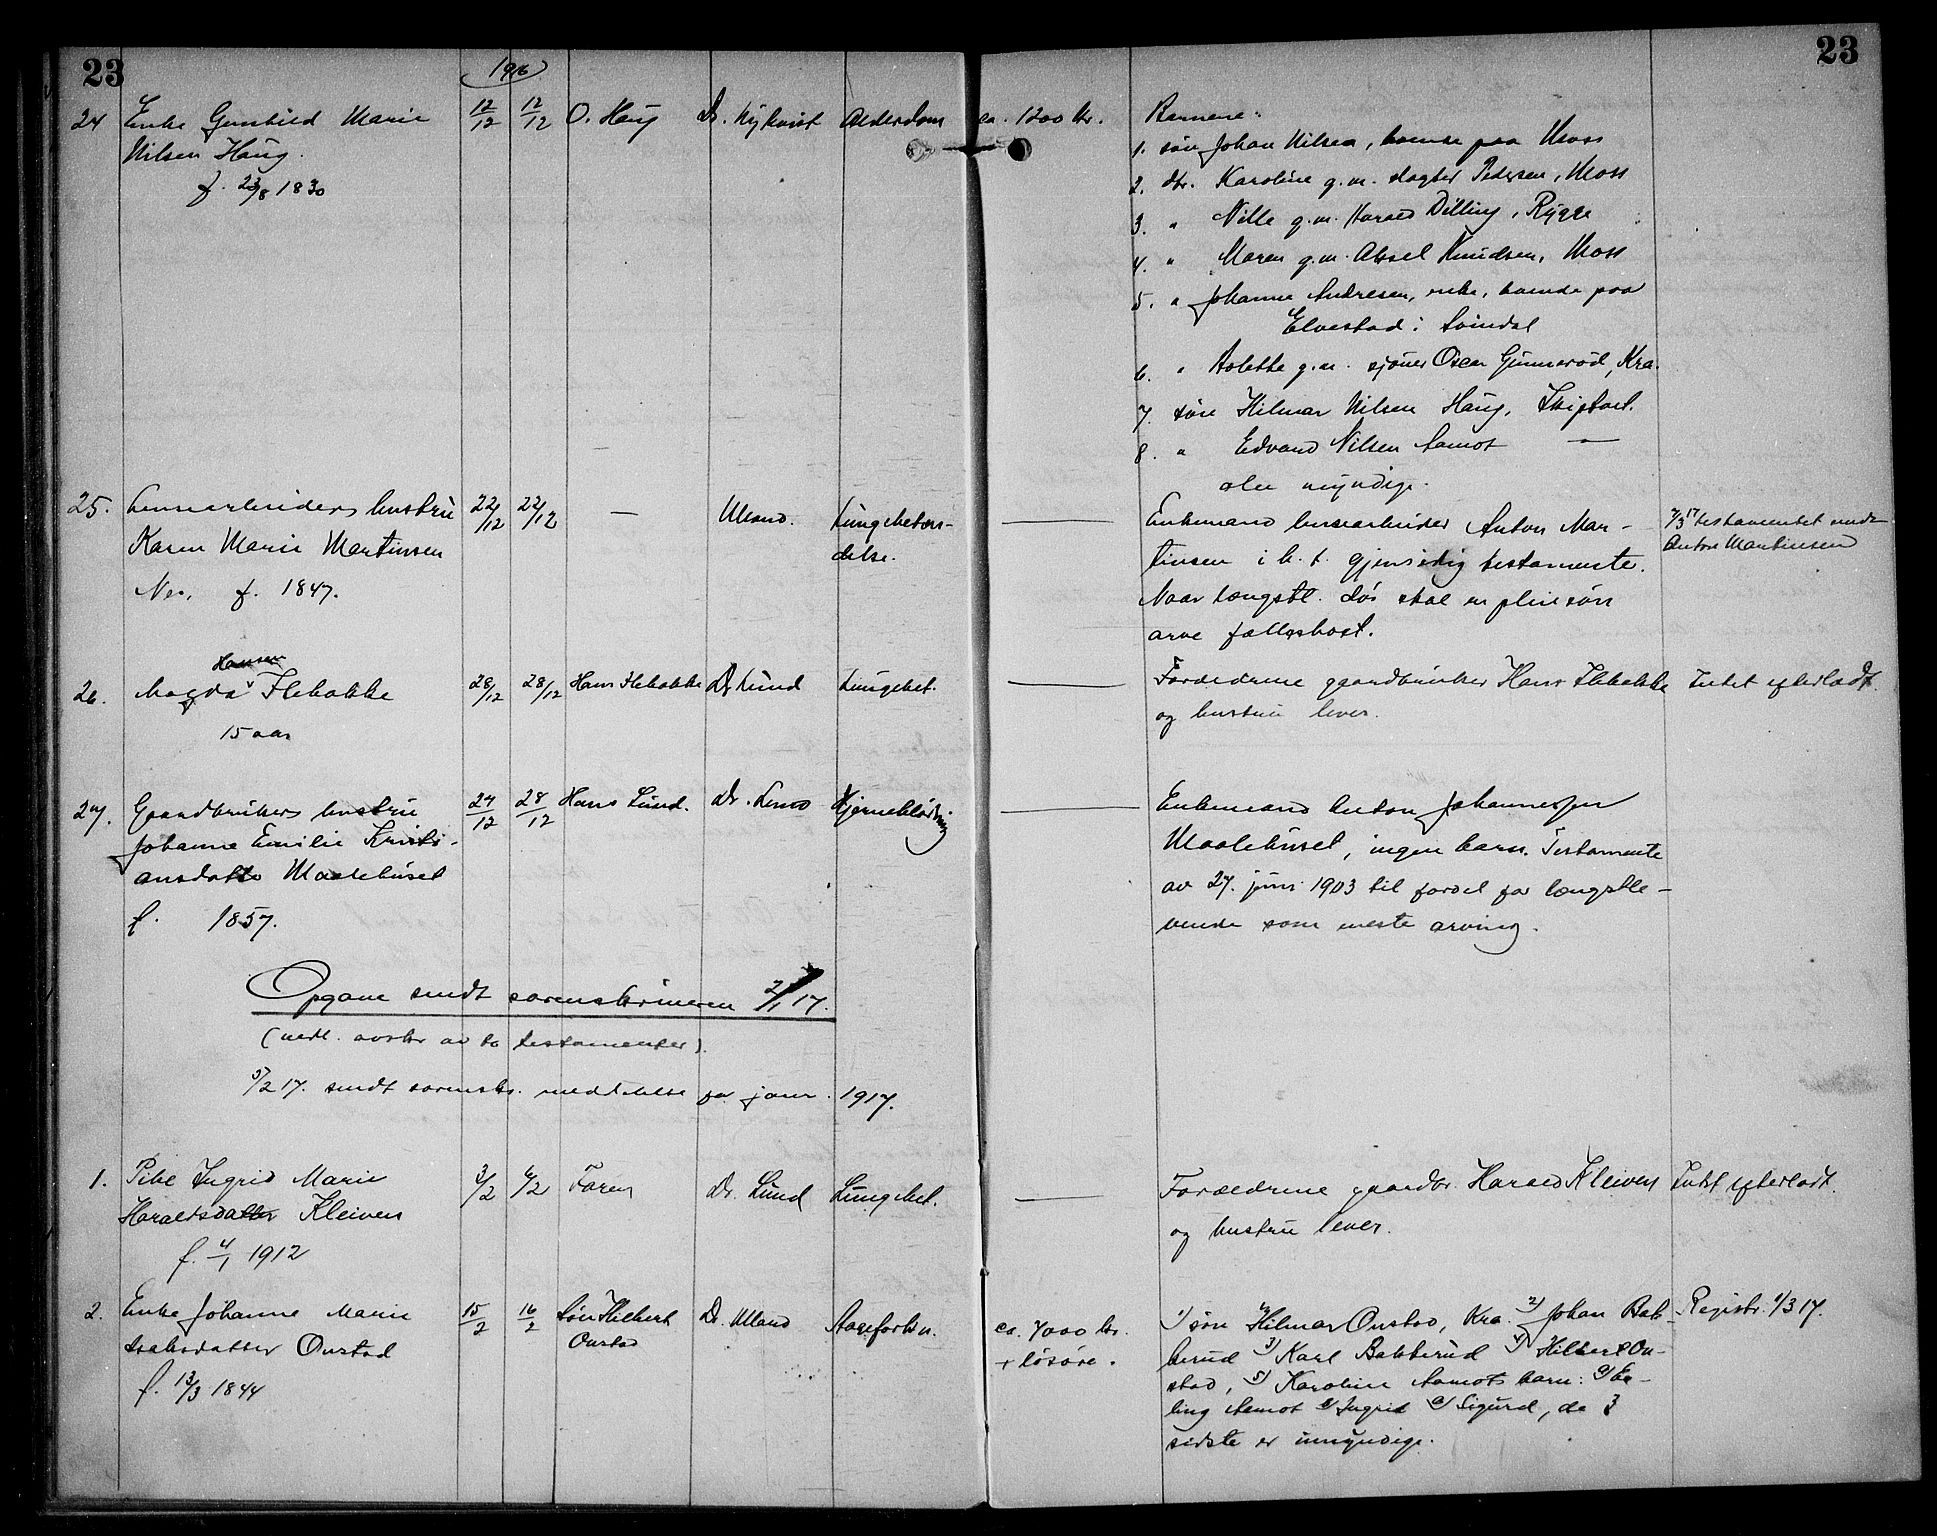 23
1916
23
24 Enke Gunhild Marie 12/12 12/12 O. Haug Dr. Nykvist Alderdom ca. 1200 kr. Barnene:
Nilsen Haug. 1. søn Johan Nilsen, boende paa Moss
f. 23/8 1830 2. dtr. Karoline g.m. slagter Pedersen, Moss
3. " Nille g.m. Harald Dilling, Rygge
4. " Maren g.m. Aksel Knudsen, Moss
5. " Johanne Andresen, enke, boende paa
Elvestad i Svindal
6. " g.m. sjømd Oscar Gunnerød, Kra.
7. søn Hilmar Nilsen Haug, Skiptvet.
8. " Edvard Nilsen Aamot —
alle myndige.
25. hustru 22/12 22/12 — Ulland. Lungebetæn- — Enkemand Anton Mar- 7/3 17 testamentet sendt
Karen Marie Martinsen delse. tinsen i h. t. gjensidig testamente. Anton Martinsen
Nes, f. 1847. Naar længstl. dør skal en pleiesøn
arve fællesboet.
Hansen
26. Magda Flebakke 28/12 28/12 Hans Flebakke Dr Lund Lungebet. — Forældrene gaardbruker Hans Flebakke Intet efterladt.
15 aar og hustru lever.
27. Gaardbrukers hustru 24/12 28/12 Hans Lund. Dr. Lund Hjerneblødning — Enkemand Anton Johannessen
Johanne Emilie Kristi- Maalehuset, ingen barn. Testamente
ansdatter Maalehuset av 27. juni 1903 til fordel for længstle-
f. 1857. vende som eneste arving.
Opgave sendt sorenskriveren 2/1 17.
(vedl. avskr av to testamenter).
5/2 17. sendt sorenskr. meddelelse for janr. 1917.
1. Pike Ingrid Marie 3/2 6/2 Faren Dr. Lund Lungebet. — Forældrene gaardbr. Harald Kleiven Intet efterladt.
Haraldsdatter Kleiven og hustru lever.
f. 4/1 1912
2. Enke Johanne Marie 15/2 16/2 Søn Hilbert Dr. Ulland Aareforkn. ca. 7000 kr. 1) søn Hilmar Onstad, Kra. 2) Johan Bak- Registr. 1/3 17.
Isaksdatter Onstad Onstad + løsøre. kerud 3) Karl Bakkerud 4) Hilbert On-
f. 13/3 1844 stad, 5) Karoline Aamots barn: a) Er-
ling Aamot b) Ingrid c) Sigurd, de 3
sidste er umyndige.